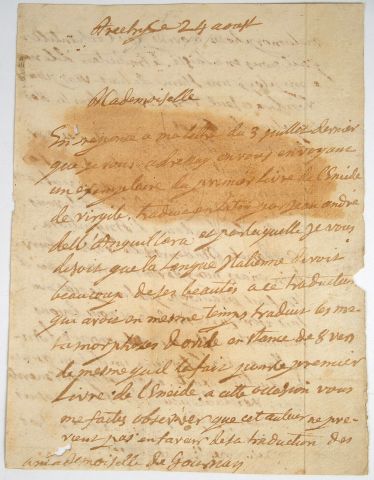 ce 24 aoust
Mademoiselle
En reponce a ma lettre du 3 juillet dernier
que je vous adressay en vous envoyant
un exemplaire du premier livre de l'Eneide
de virgile, traduit en par jean andre
dell'Anguillara et par laquelle je vous
disois que la langue Italienne devoit
beaucoup de ses beautés a ce traducteur
qui avoit en mesme temps traduit les me
tamorphoses d'ovide en stance de 8 vers
de mesme qu'il la fait pour le premier
Livre de l'Eneide a cette occasion vous
me faites observer que cet auteur ne pre
vient pas en faveur de sa traduction des
a mademoiselle de Gournay